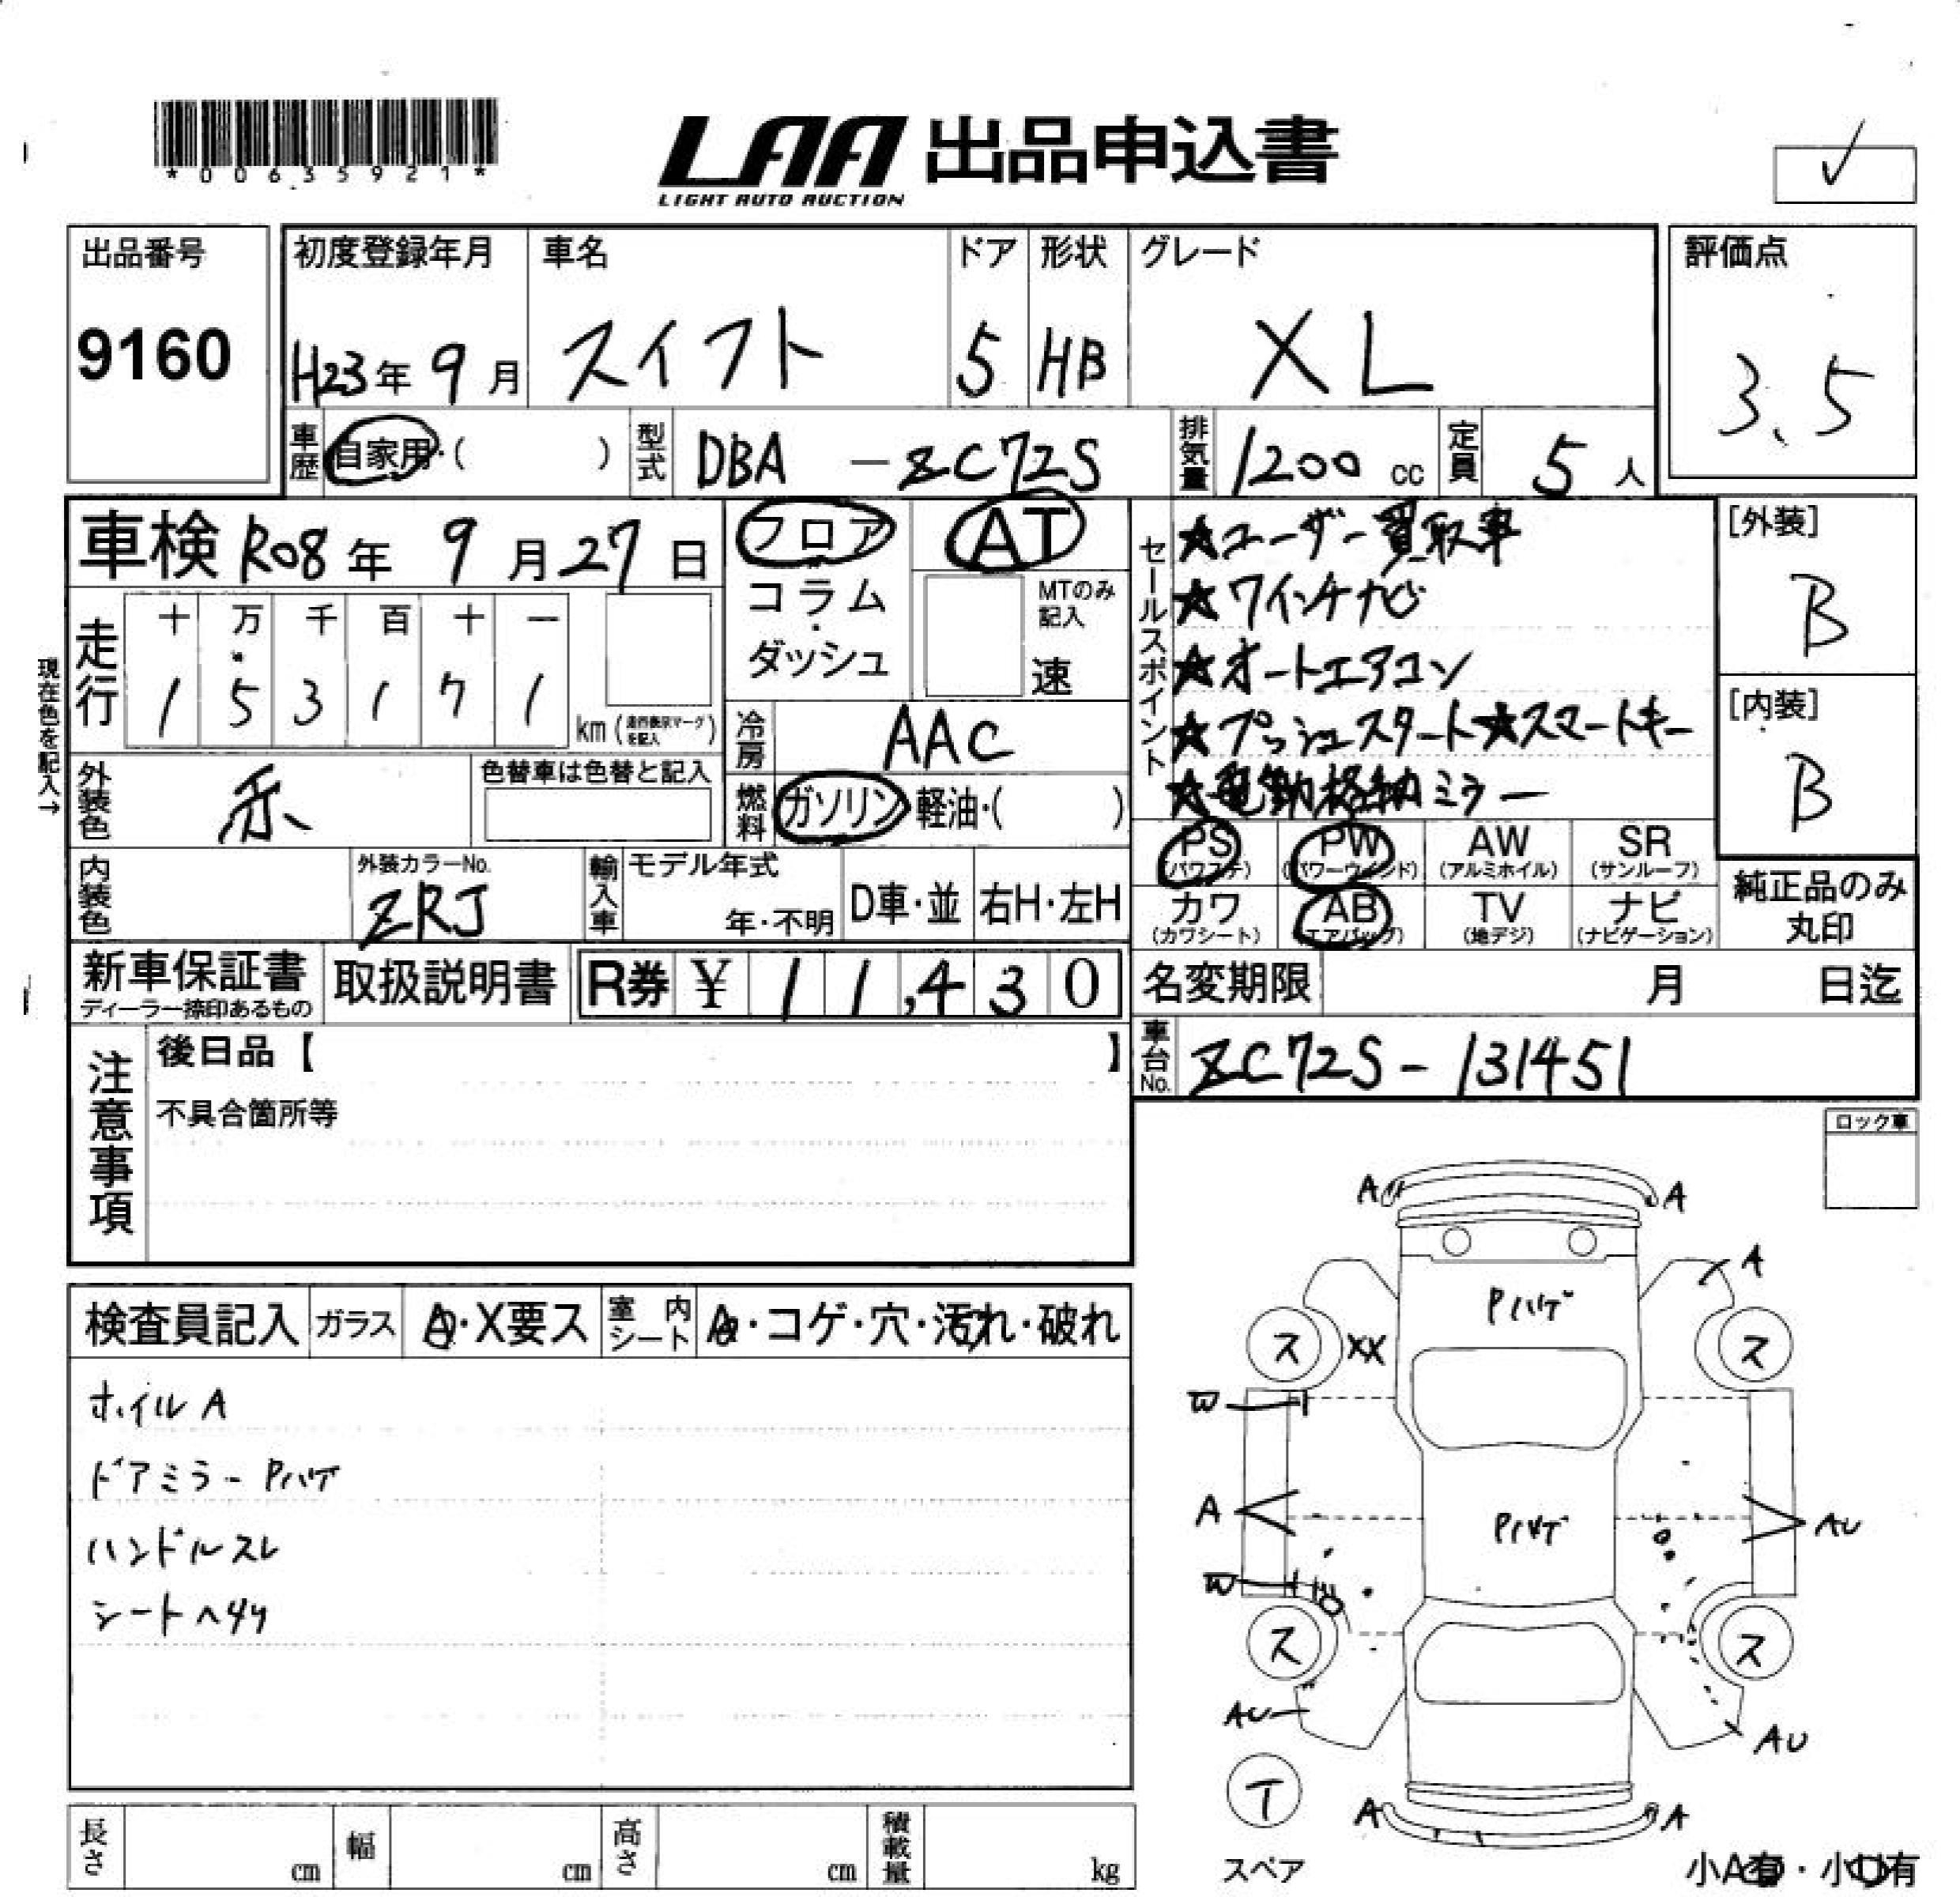 *00635921*
LAA 出品申込書
LIGHT AUTO AUCTION
出品番号
9160
初度登録年月
H23年 9月
車名
スイフト
ドア
5
形状
HB
グレード
XL
評価点
3.5
車歴 自家用・( )
型式 DBA - ZC72S
排気量 1200 cc
定員 5 人
車検 R08年 9月 27日
フロア・コラム・ダッシュ
AT
MTのみ記入
速
セールスポイント
★ユーザー買取車
★7インチナビ
★オートエアコン
★プッシュスタート★スマートキー
★電動格納ミラー
[外装]
B
[内装]
B
現在色を記入→
走行
十 万 千 百 十 一
1 5 3 1 7 1
km
冷房 AAC
外装色 赤
色替車は色替と記入
燃料 ガソリン・軽油・( )
PS (パワステ)
PW (パワーウインド)
AW (アルミホイル)
SR (サンルーフ)
カワ (カワシート)
AB (エアバッグ)
TV (地デジ)
ナビ (ナビゲーション)
純正品のみ丸印
内装色
外装カラーNo.
ZRJ
輸入車
モデル年式
年・不明
D車・並
右H・左H
新車保証書
ディーラー捺印あるもの
取扱説明書
R券 ¥ 11,430
名変期限 月 日迄
車台No. ZC72S-131451
注意事項
後日品【 】
不具合箇所等
ロック車
検査員記入
ガラス A・X要ス
室内シート A・コゲ・穴・汚れ・破れ
ホイル A
ドアミラー Pハゲ
ハンドルスレ
シートヘタリ
A A
A
Pハゲ
ス XX ス
W
A Pハゲ AU
W
ス ス
AU AU
T
A A
スペア
小A有・小U有
長さ cm
幅 cm
高さ cm
積載量 kg